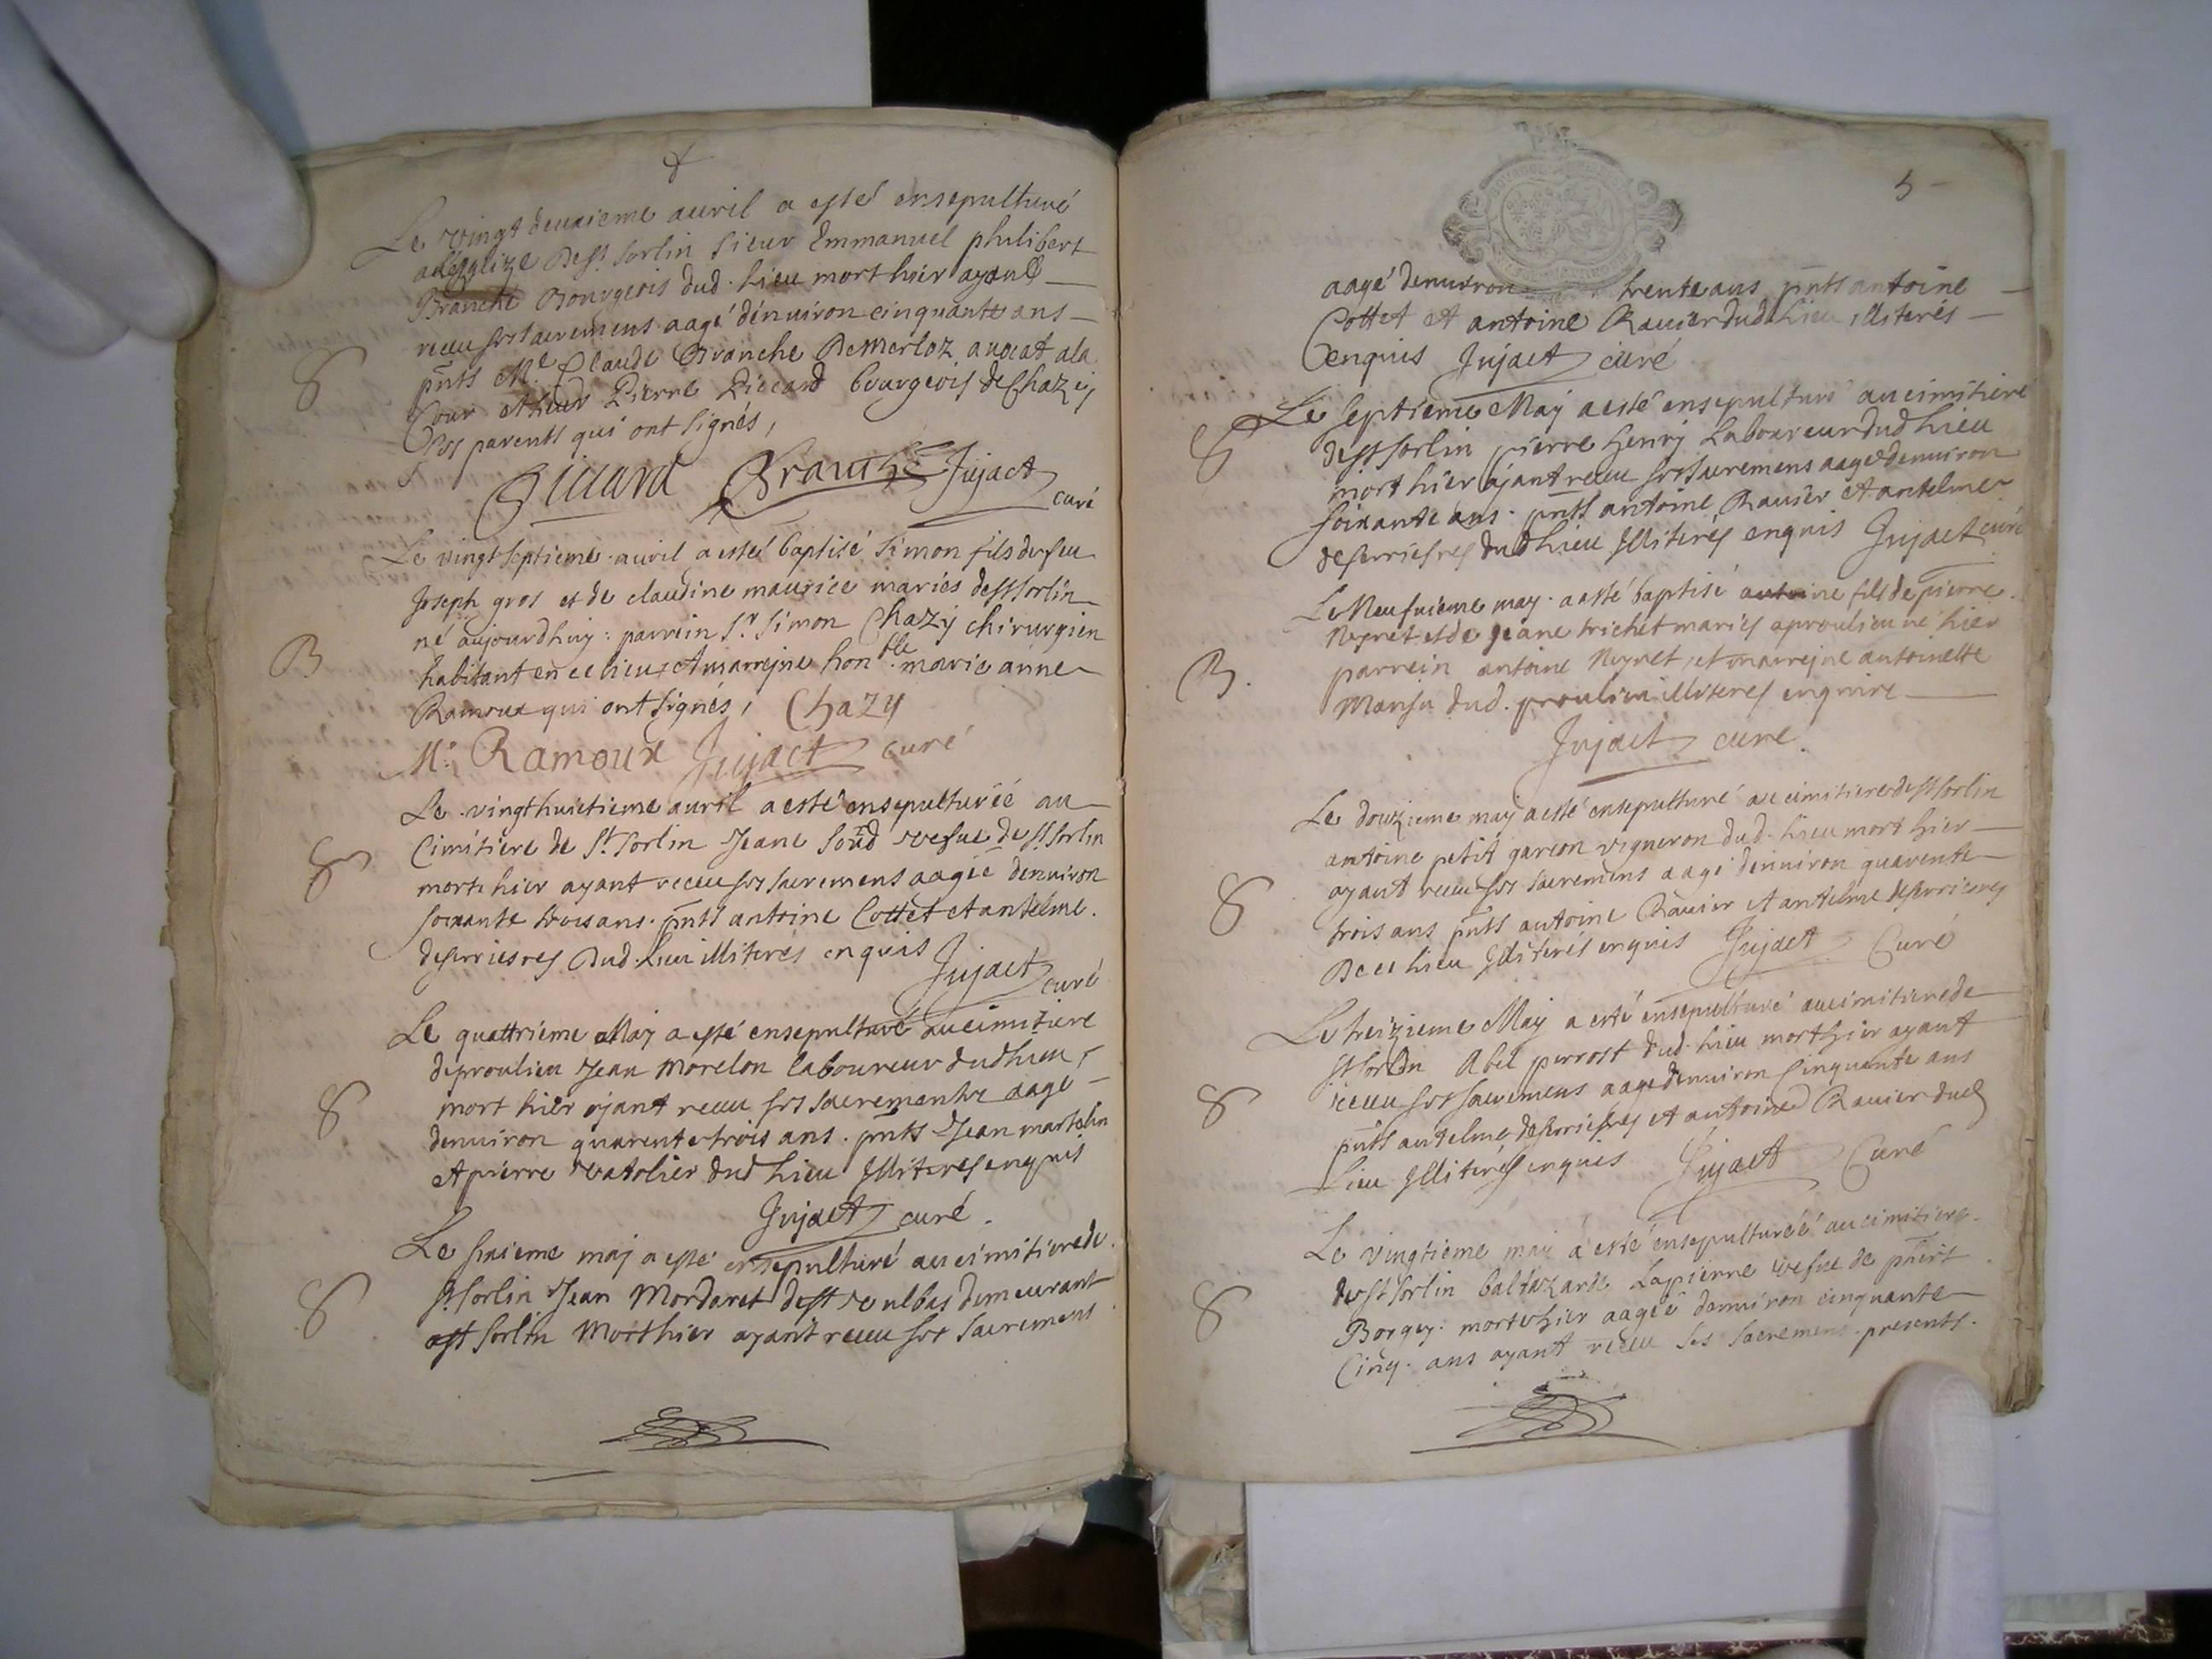 Le vingt deuxieme auril a esté ensepulturé
a l'eglize de St. Sorlin Sieur Emmanuel philibert
Branche Bourgeois dud. lieu mort hier ayant
receu ses sacremens aagé d'enuiron cinquante ans
pnts Me. Claude Branche Demerloz auocat a la
Cour et sieur Pierre Piccard bourgeois de Chazey
S
parents qui ont signés,
Piccard Branche Jujact
curé
Le vingt septieme auril a esté baptisé Simon fils de feu
Joseph gros et de claudine maurice mariés de St Sorlin
né aujourdhuy : parrein Sr. Simon Chazy chirurgien
B
habitant en ce lieu, et marrejne honble. marie anne
Ramoux qui ont signés, Chazy
M. Ramoux Jujact curé
Le vingt huictieme auril a esté ensepulturéé au
Cimitiere de St. Sorlin Jeane vefue de St. Sorlin
S
morte hier ayant receu ses sacremens aagéé denuiron
soixante trois ans. pnts antoine Cottet et antelme
deferriesres dud. lieu illiterés enquis Jujact curé
Le quattrieme Maj a esté ensepulturé au cimitiere
de proulieu Jean Morelon laboureur dud lieu,
S
mort hier ajant receu ses sacrements aagé
denuiron quarente trois ans. pnts Jean martelin
et pierre vatolier dud lieu Illiterés enquis
Jujact curé.
Le sixieme maj a esté ensepulturé au cimitiere de
St Sorlin Jean Mordaret de St demeurant
S
a St Sorlin Mort hier ayant receu ses sacremens
5
aagé denuiron trente ans pnts antoine
Cottet et antoine Rauier dud lieu illiterés
enquis Jujact curé
Le septieme Maj a esté ensepulturé au cimitiere
S
de St Sorlin pierre henry Laboureur dud lieu
mort hier ajant receu ses sacremens aagé denuiron
soixante ans. pnts antoine Rauier et antelme
deferriesres dud lieu Illiterés enquis Jujact curé
Le Neufuieme may a esté baptisé antoine fils de pierre
Neyret et de Jeane trichet mariés a proulieu né hier
B.
parrein antoine Neyret, et marrejne antoinette
Mansu dud. proulieu illiterés enquire
Jujact curé.
Le douzieme maj a esté ensepulturé au cimitiere de St Sorlin
antoine petit garcon vigneron dud. lieu mort hier
S
ayant receu ses sacremens aagé denuiron quarente
trois ans pnts antoine Rauier et antelme deferriesres
De ce lieu Illiterés enquis Jujact Curé
Le treizieme Maj a esté ensepulturé au cimitiere de
St Sorlin Abel perrost dud. lieu mort hier ayant
S
receu ses sacremens aagé denuiron Cinquante ans
pnts antelme deferriesres et antoine Rauier dud
lieu Illiterés enquis Jujact Curé
Le vingtieme maj a esté ensepulturéé au cimitiere
de St Sorlin baltazarde Lapierre vefue de
S
Borgey. morte hier aagéé denuiron cinquante
Cinq. ans ayant receu ses sacremens. presents.